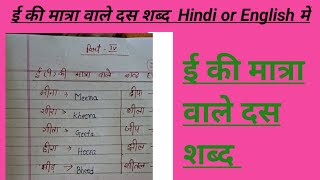 ई की मात्रा वाले दस शब्द Hindi or English मे
Part - IV
ई (ी) की मात्रा वाले
मीना → Meena
खीरा → Kheera
गीता → Geeta
हीरा → Heera
भीड़ → Bheed
ई की मात्रा
वाले दस
शब्द